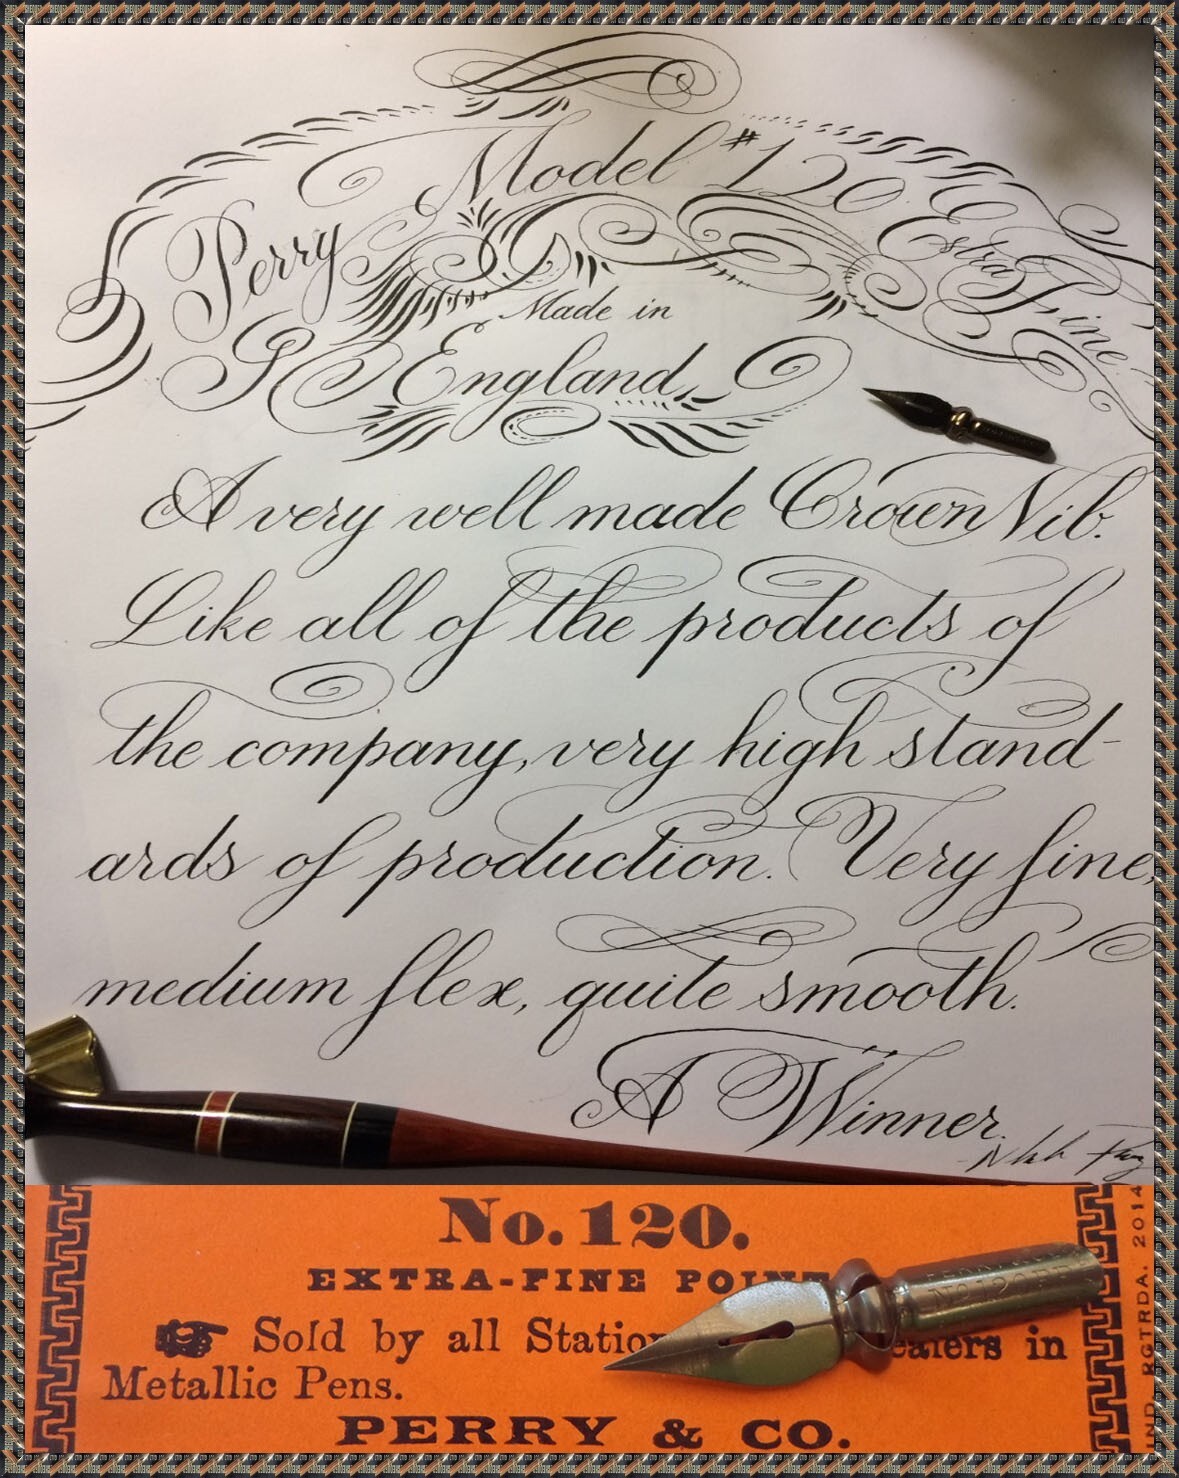 Model #120
Perry
Extra Fine
Made in
England
A very well made Crown Nib.
Like all of the products of
the company, very high stand-
ards of production. Very fine,
medium flex, quite smooth.
A Winner.
No. 120.
EXTRA-FINE POINT
Sold by all in
Metallic Pens.
PERRY & CO.
RGTRDA. 2014